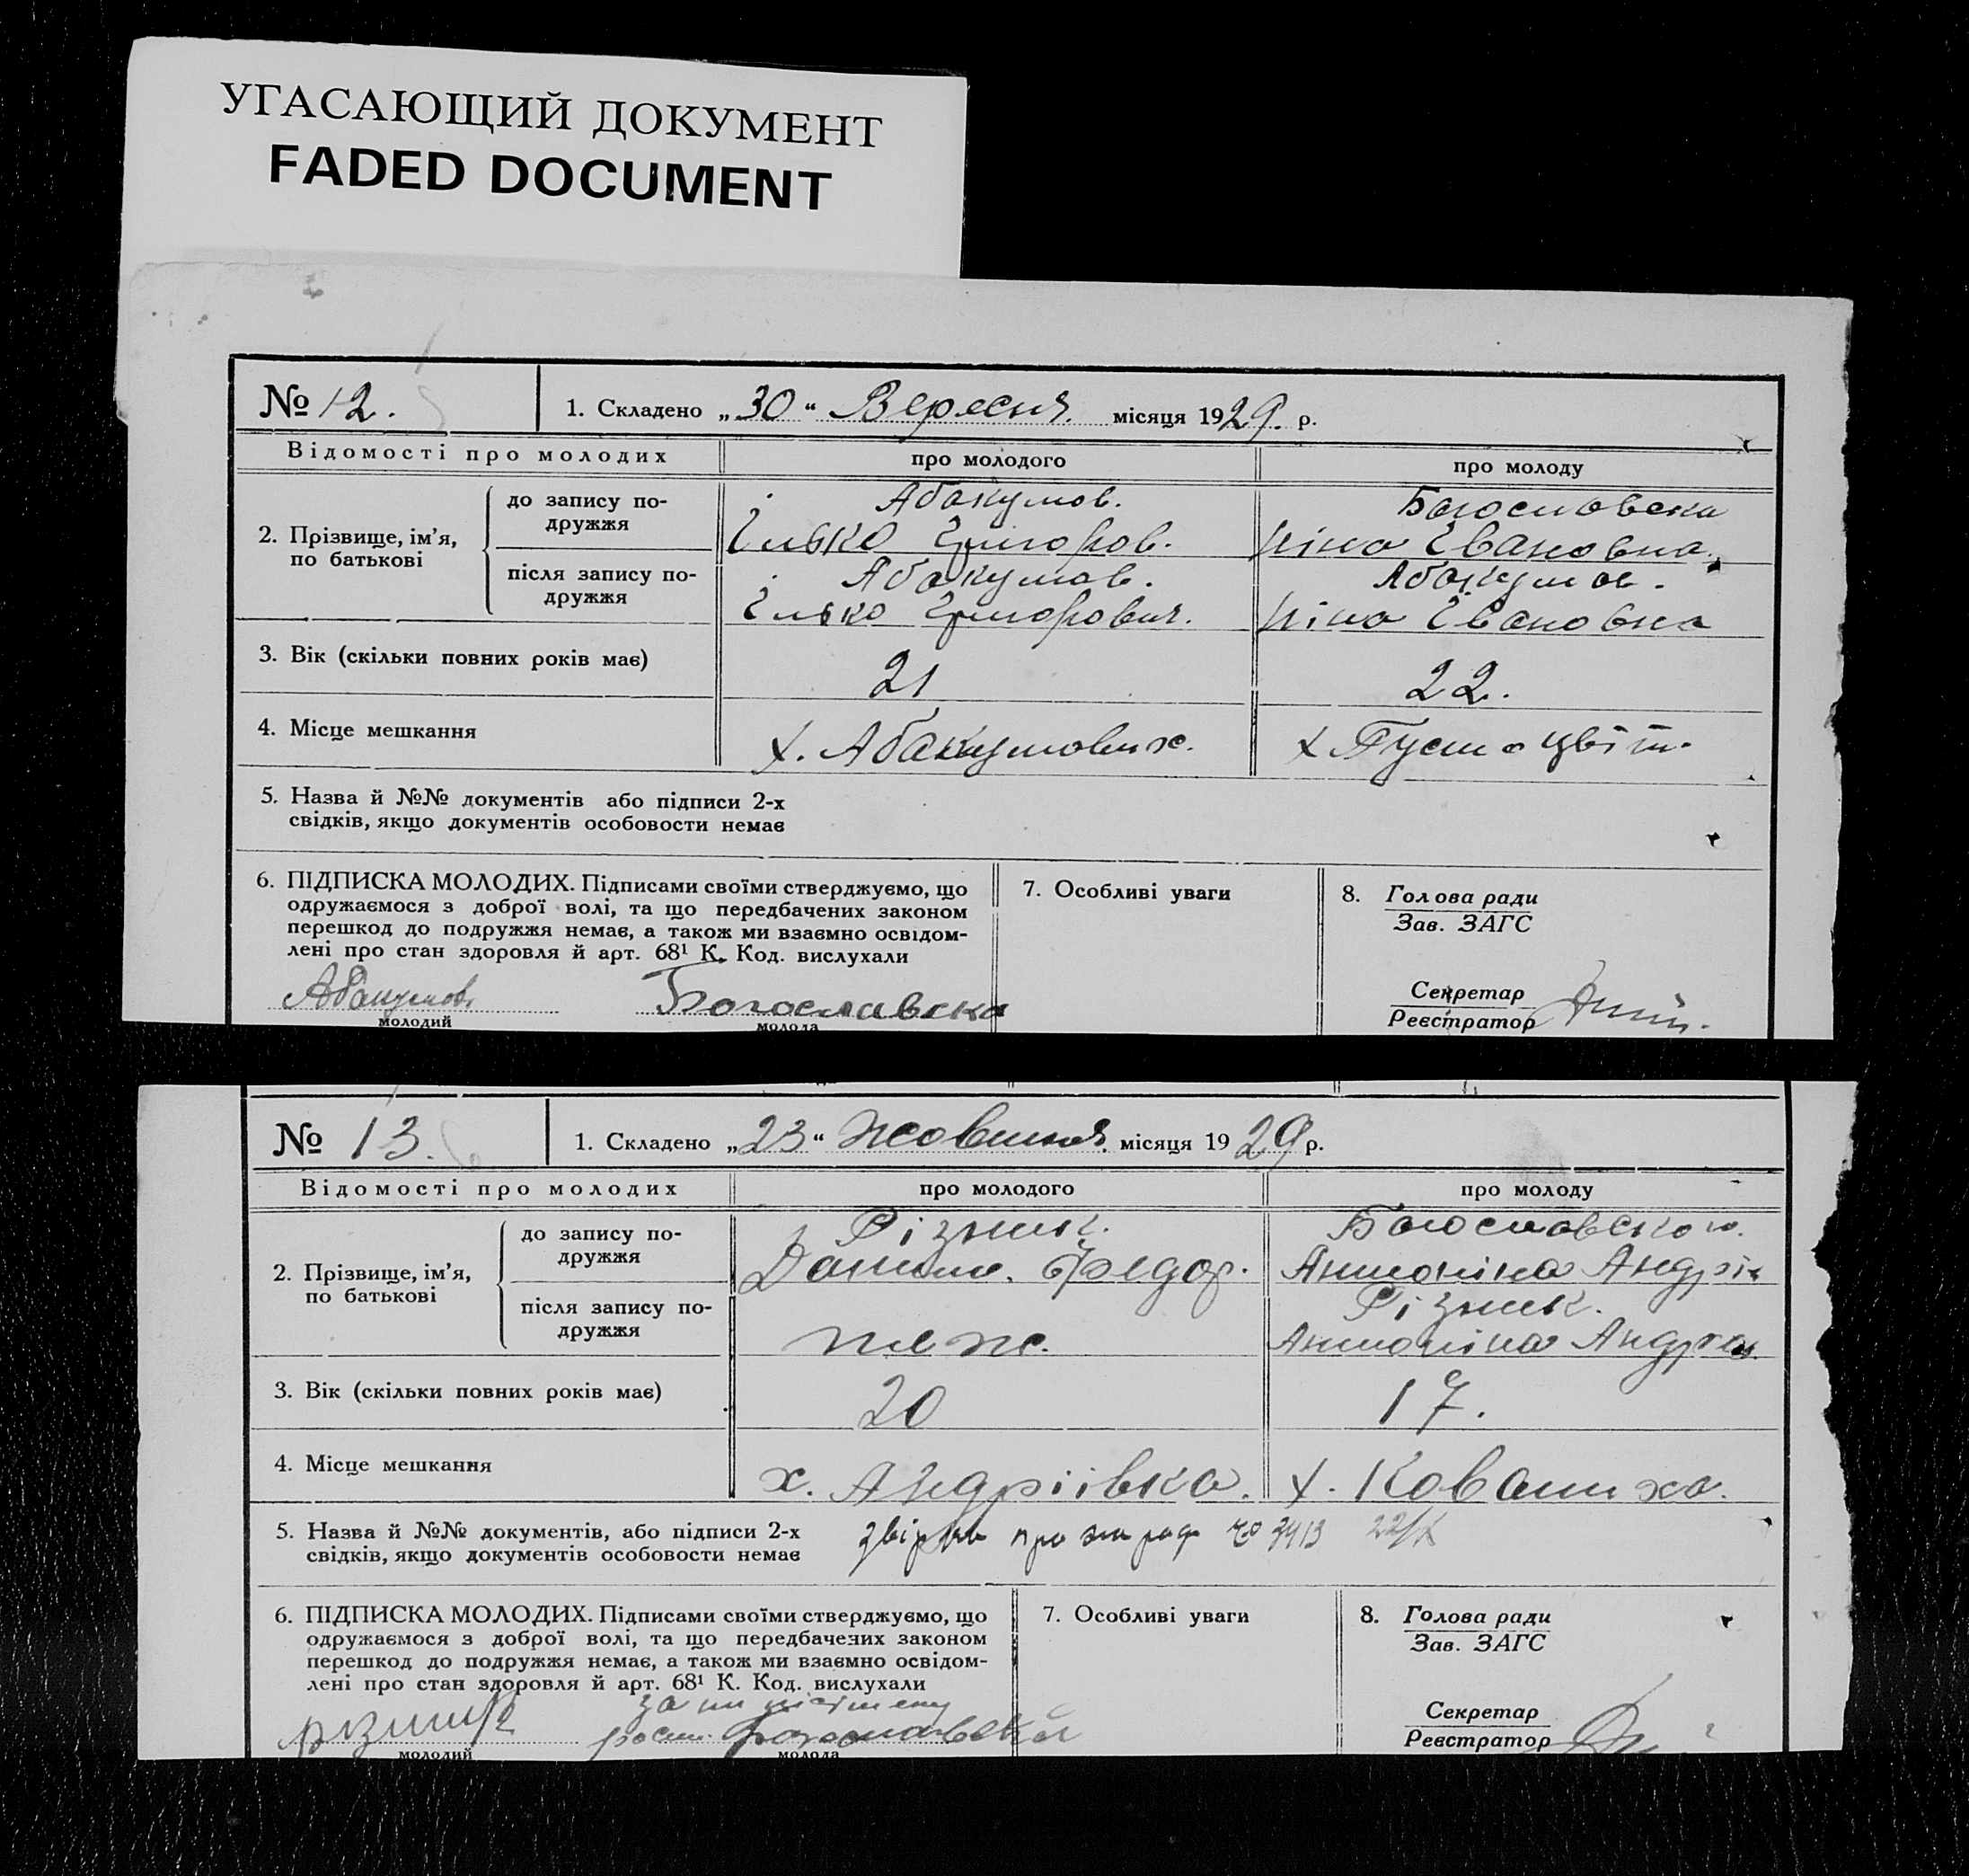 УГАСАЮЩИЙ ДОКУМЕНТ
FADED DOCUMENT
№ 12. 1. Складено „30“ Вересня. місяця 1929. р.
Відомості про молодих про молодого про молоду
2. Прізвище, ім’я, по батькові
до запису подружжя
Абакумов.
Ілько Григоров.
Богословска
Ніна Івановна.
після запису подружжя
Абакумов.
Ілько Григорович.
Абакумов.
Ніна Івановна
3. Вік (скільки повних років має) 21 22.
4. Місце мешкання х. Абакумових. х Пустоцвіт.
5. Назва й №№ документів або підписи 2-х
свідків, якщо документів особовости немає
6. ПІДПИСКА МОЛОДИХ. Підписами своїми стверджуємо, що
одружаємося з доброї волі, та що передбачених законом
перешкод до подружжя немає, а також ми взаємно освідом-
лені про стан здоровля й арт. 68¹ К. Код. вислухали
Абакумов Богославска
молодий молода
7. Особливі уваги
8. Голова ради
Зав. ЗАГС
Секретар
Реєстратор
№ 13. 1. Складено „23“ Жовтня. місяця 1929 р.
Відомості про молодих про молодого про молоду
2. Прізвище, ім’я,
по батькові
до запису по-
дружжя
Різник.
Данило. Федор.
Богословською.
Антоніна Андрії
після запису по-
дружжя
теж.
Різник.
Антоніна Андрія
3. Вік (скільки повних років має) 20 17.
4. Місце мешкання х. Андріівка. х. Коваливха.
5. Назва й №№ документів, або підписи 2-х
свідків, якщо документів особовости немає
22/X
6. ПІДПИСКА МОЛОДИХ. Підписами своїми стверджуємо, що
одружаємося з доброї волі, та що передбачених законом
перешкод до подружжя немає, а також ми взаємно освідом-
лені про стан здоровля й арт. 68¹ К. Код. вислухали
за
молодий молода
7. Особливі уваги
8. Голова ради
Зав. ЗАГС
Секретар
Реєстратор